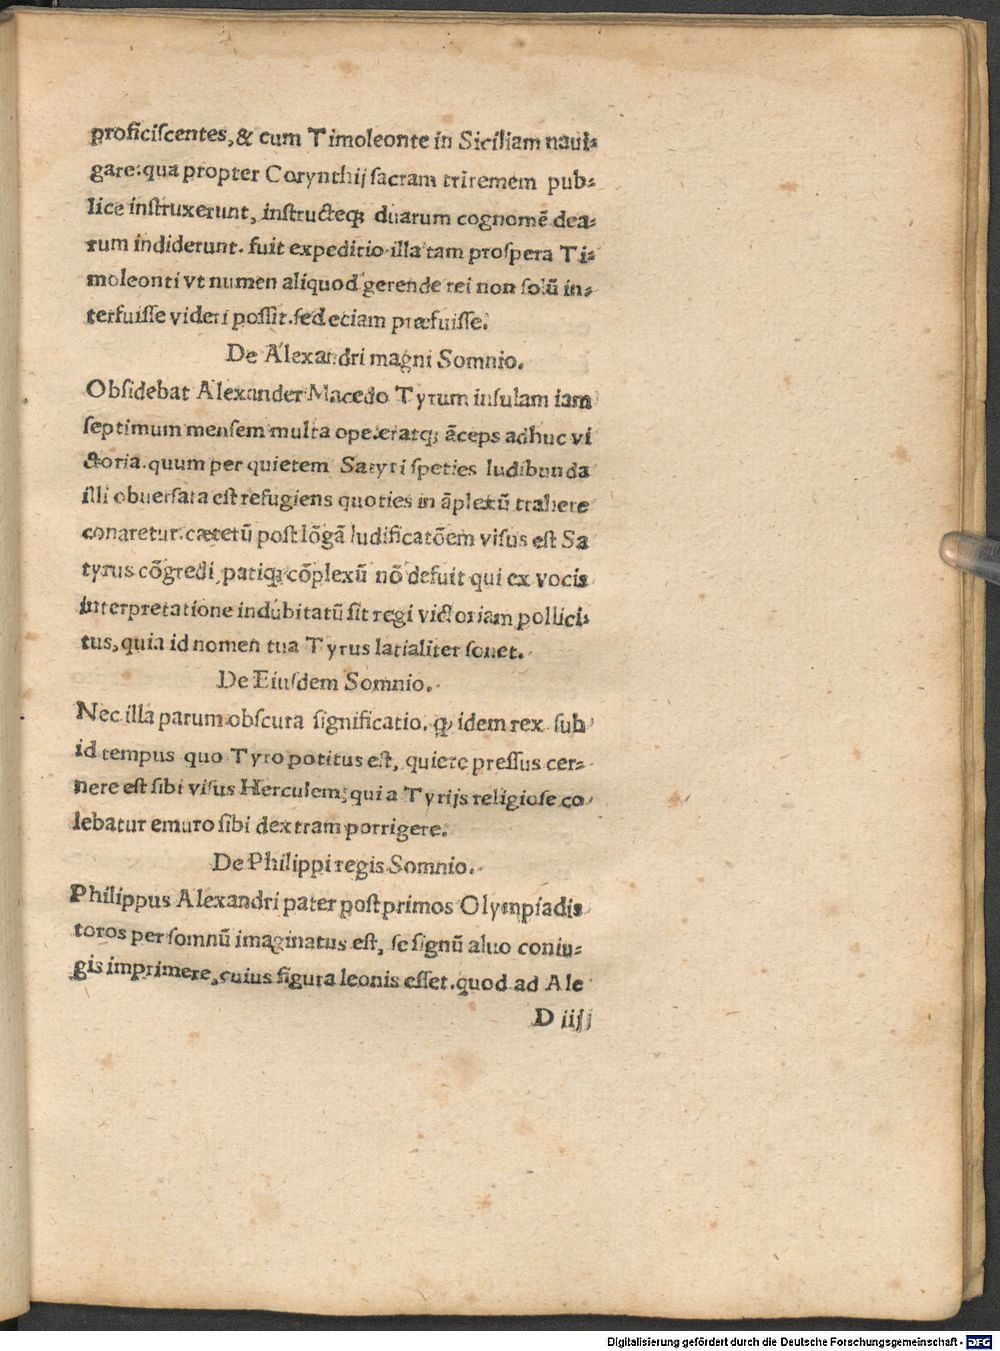 proficiscentes, & cum Timoleonte in Siciliam naui-
gare: qua propter Corynthij sacram triremem pub-
lice instruxerunt, instructeq; duarum cognomē dea-
rum indiderunt. fuit expeditio illa tam prospera Ti-
moleonti vt numen aliquod gerende rei non solū in-
terfuisse videri possit. sed eciam præfuisse.
De Alexandri magni Somnio.
Obsidebat Alexander Macedo Tyrum insulam iam
septimum mensem multa ope: eratq; āceps adhuc vi
ctoria. quum per quietem Satyri species ludibunda
illi obuersata est refugiens quoties in āplexū trahere
conaretur: cæterū post lōgā ludificatōem visus est Sa
tyrus cōgredi, patiq; cōplexū nō defuit qui ex vocis
interpretatione indubitatū sit regi victoriam pollici-
tus, quia id nomen tua Tyrus latialiter sonet.
De Eiusdem Somnio.
Nec illa parum obscura significatio. ꝙ idem rex sub
id tempus quo Tyro potitus est, quiete pressus cer-
nere est sibi visus Herculem; qui a Tyrijs religiose co
lebatur e muro sibi dextram porrigere.
De Philippi regis Somnio.
Philippus Alexandri pater post primos Olympiadis
toros per somnū imaginatus est, se signū aluo coniu-
gis imprimere, cuius figura leonis esset. quod ad Ale
D iiij
Digitalisierung gefördert durch die Deutsche Forschungsgemeinschaft - DFG